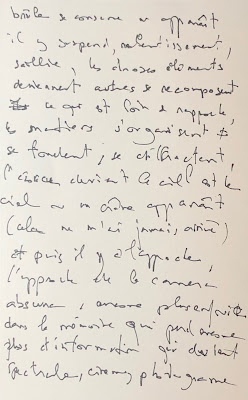 brûle se consume ou apparaît
il y suspend, ralentissement,
saillie, les choses éléments
deviennent autres se recomposent
ce qui est loin se rapproche,
les s'organisent
se fondent, se diffractent,
l'oiseau devient le ciel est le
ciel ou un ordre apparaît
(cela ne m'est jamais arrivé)
et puis il y a l'approche,
l'approche de la caméra
absence, encore plus enfouie
dans la mémoire qui perd encore
plus d'information qui devient
spectrale, cinema photogramme